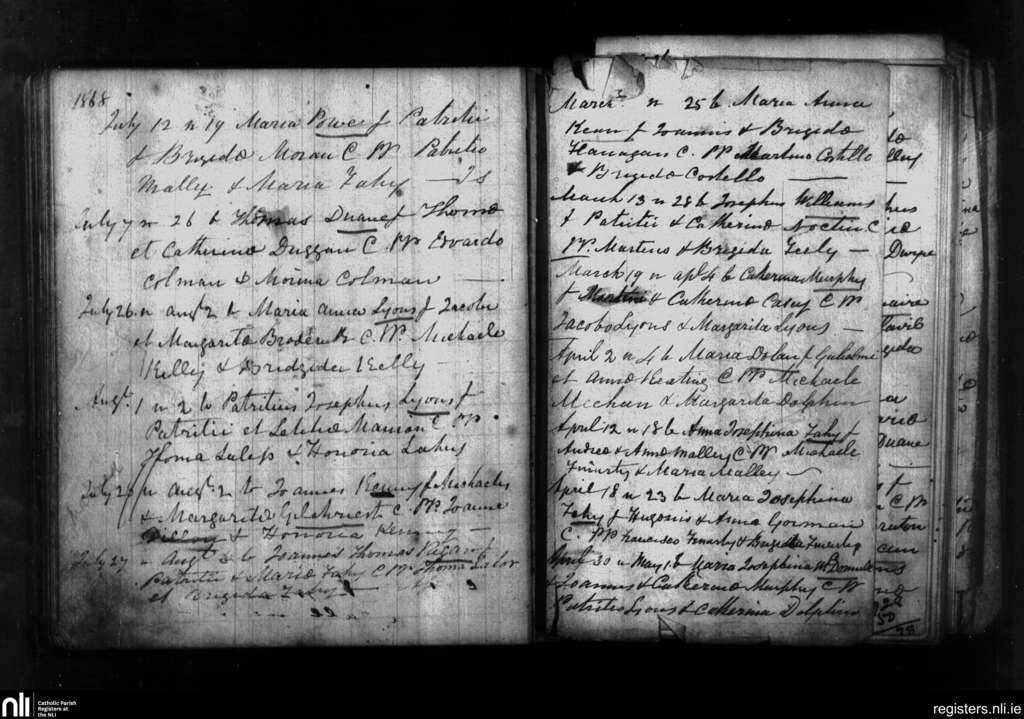 1868
July 12 n 19 Maria Power f Patritii
& Brigidæ Moran C PP Patritio
Mally & Maria Fahy — 2s
July 7 n 26 b Thomas Duane f Thomæ
et Catherinæ Duggan C PP Edvardo
Colman & Morina Colman —
July 26 n augt 2 b Maria Anna Lyons f Jacobi
et Margaritæ Broderick C. PP. Michaele
Kelly & Bridgida Kelly
Augt. 1 n 2 b Patritius Josephus Lyons f
Patritii et Letitiæ Mannon C PP
Thoma & Honoria
July 29 n augt 2 b Joannes Kenny f Michaelis
& Margaritæ Gilchriest C. PP. Joanne
Dillon & Honoria Kenny —
July 27 n Augt b Joannes Thomas f
Patritii & Mariæ Fahy C PP Thoma Lalor
et Brigida Fahy
March 3 n 25 b Maria Anna
Kean f Joannis & Brigidæ
Flanagan C. PP Martino Costello
& Brigida Costello —
March 13 n 28 b Josephus Williams
f Patritii & Catherinæ Noctin C
PP. Martino & Bregida Feely —
March 19 n apl 4 b Catherina Murphy
f Martini & Catherinæ Casey C PP
Jacobo Lyons & Margarita Lyons —
April 2 n 4 b Maria Dolan f Gulielmi
et Annæ Keating C PP Michaele
Meehan & Margarita Dolphin
April 12 n 18 b Anna Josephina Fahy f
Andreæ & Annæ Malley C PP Michaele
Finerty & Maria Malley
April 18 n 23 b Maria Josephina
Fahy f Hugonis & Annæ Gorman
C. PP Francisco Finerty & Brigida Finerty
April 30 n May 1 b Maria Josephina
f Joannis & Catherinæ Murphy C PP
Patritio Lyons & Catherina Dolphin
Duane
nli Catholic Parish
Registers at
the NLI
registers.nli.ie